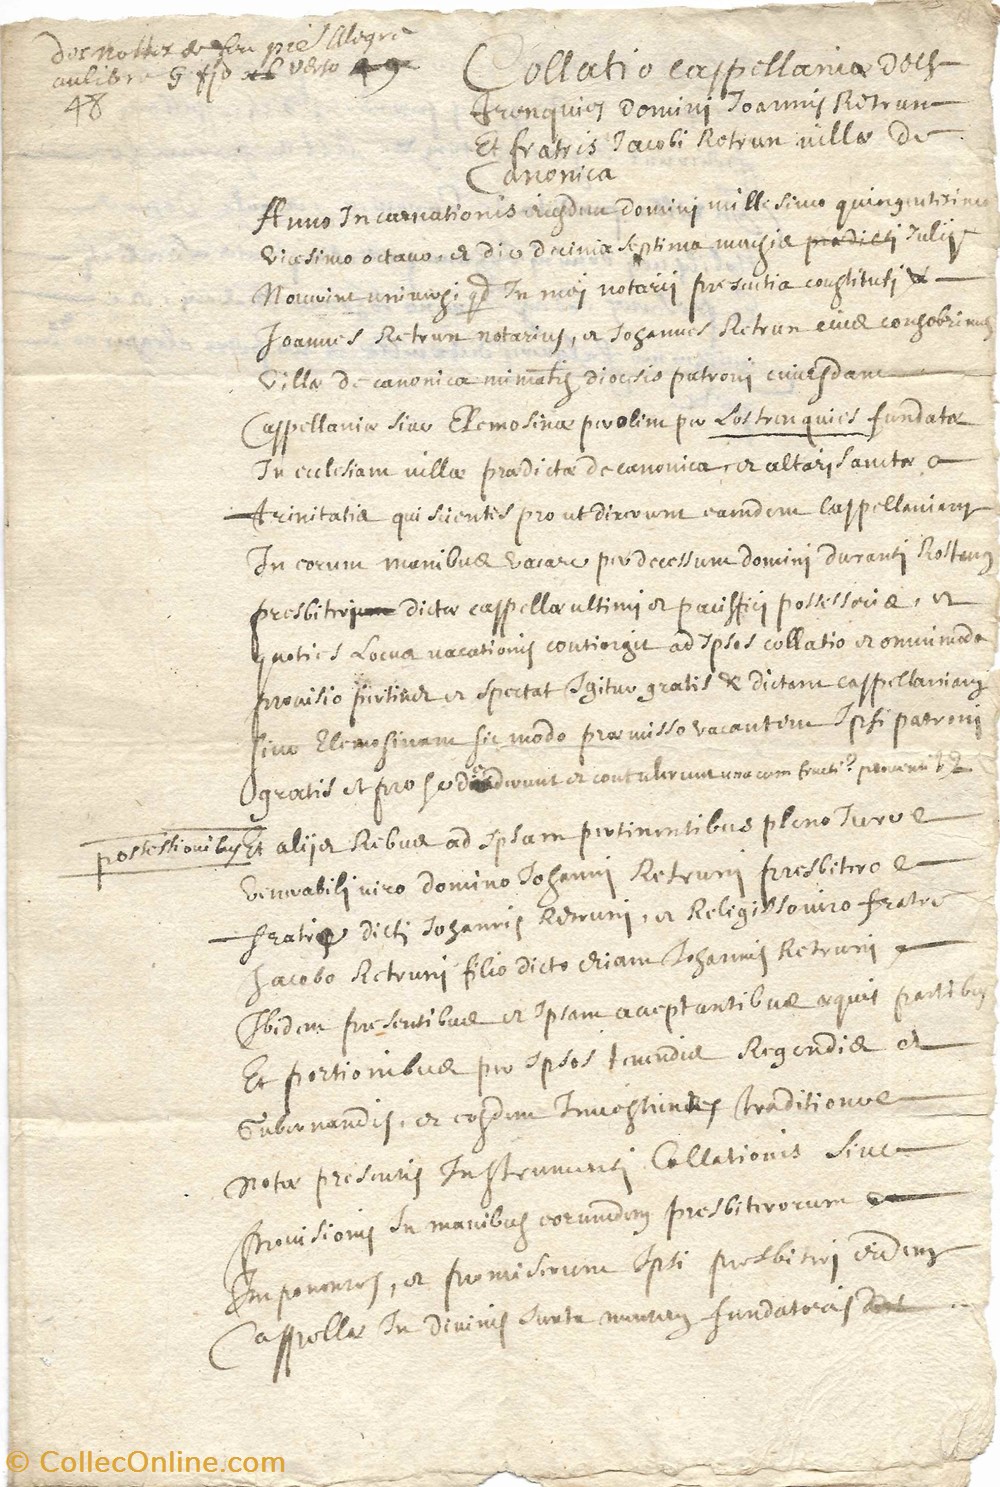 des nottes de feu pies Alegre
au libre 5 fo verso 49
48
Collatio cappellaniæ dels
trenquies domini Joannis Retrun
Et fratris Jacobi Retrun villæ de
Canonica
Anno Incarnationis eiusdem domini millesimo quingentesimo
vicesimo octavo, et die decima septima mensis predicti Julij
Noverint universi qd In mei notarii presentia constituti
Joannes Retrun notarius, et Johannes Retrun eius consobrinus
villæ de canonica mimatis diocesis patroni cuiusdam
Cappellaniæ sive Elemosinæ per olim per Los trenquies fundatæ
In ecclesiam villæ prædictæ de canonica, et altari Sanctæ
trinitatis qui scientes prout dixerunt eamdem Cappellaniam
In eorum manibus vacare per decessum domini duranti
presbiterium dictæ cappellæ ultimi et paciffici possessoris, et
quoties Locus vacationis contiergit ad Ipsos collatio et omnimoda
provisio pertinet et spectat Igitur gratis & dictam cappellaniam
sive Elemosinam sic modo præmisso vacantem Ipsi patroni
gratis et pro deo dederunt et contulerunt una cum fructi?
possessionibus Et alijs Rebus ad Ipsam pertinentibus pleno Jure
Venerabili viro domino Johanni Retruni presbitero
fratri dicti Johannis Retruni, et Religioso viro fratre
Jacobo Retruni filio dicto etiam Johannis Retruni
Ibidem presentibus et Ipsam acceptantibus æquis partibus
Et portionibus per Ipsos tenendis Regendis et
Gubernandis, et eosdem Investiendes traditione
Notæ presentis Instrumenti Collationis Sive
Provisionis In manibus eorumdem presbiterorum
Imponentes, et promiserunt Ipsi presbiteri eidem
Cappellæ In divinis Juxta mentem fundatoris
© CollecOnline.com